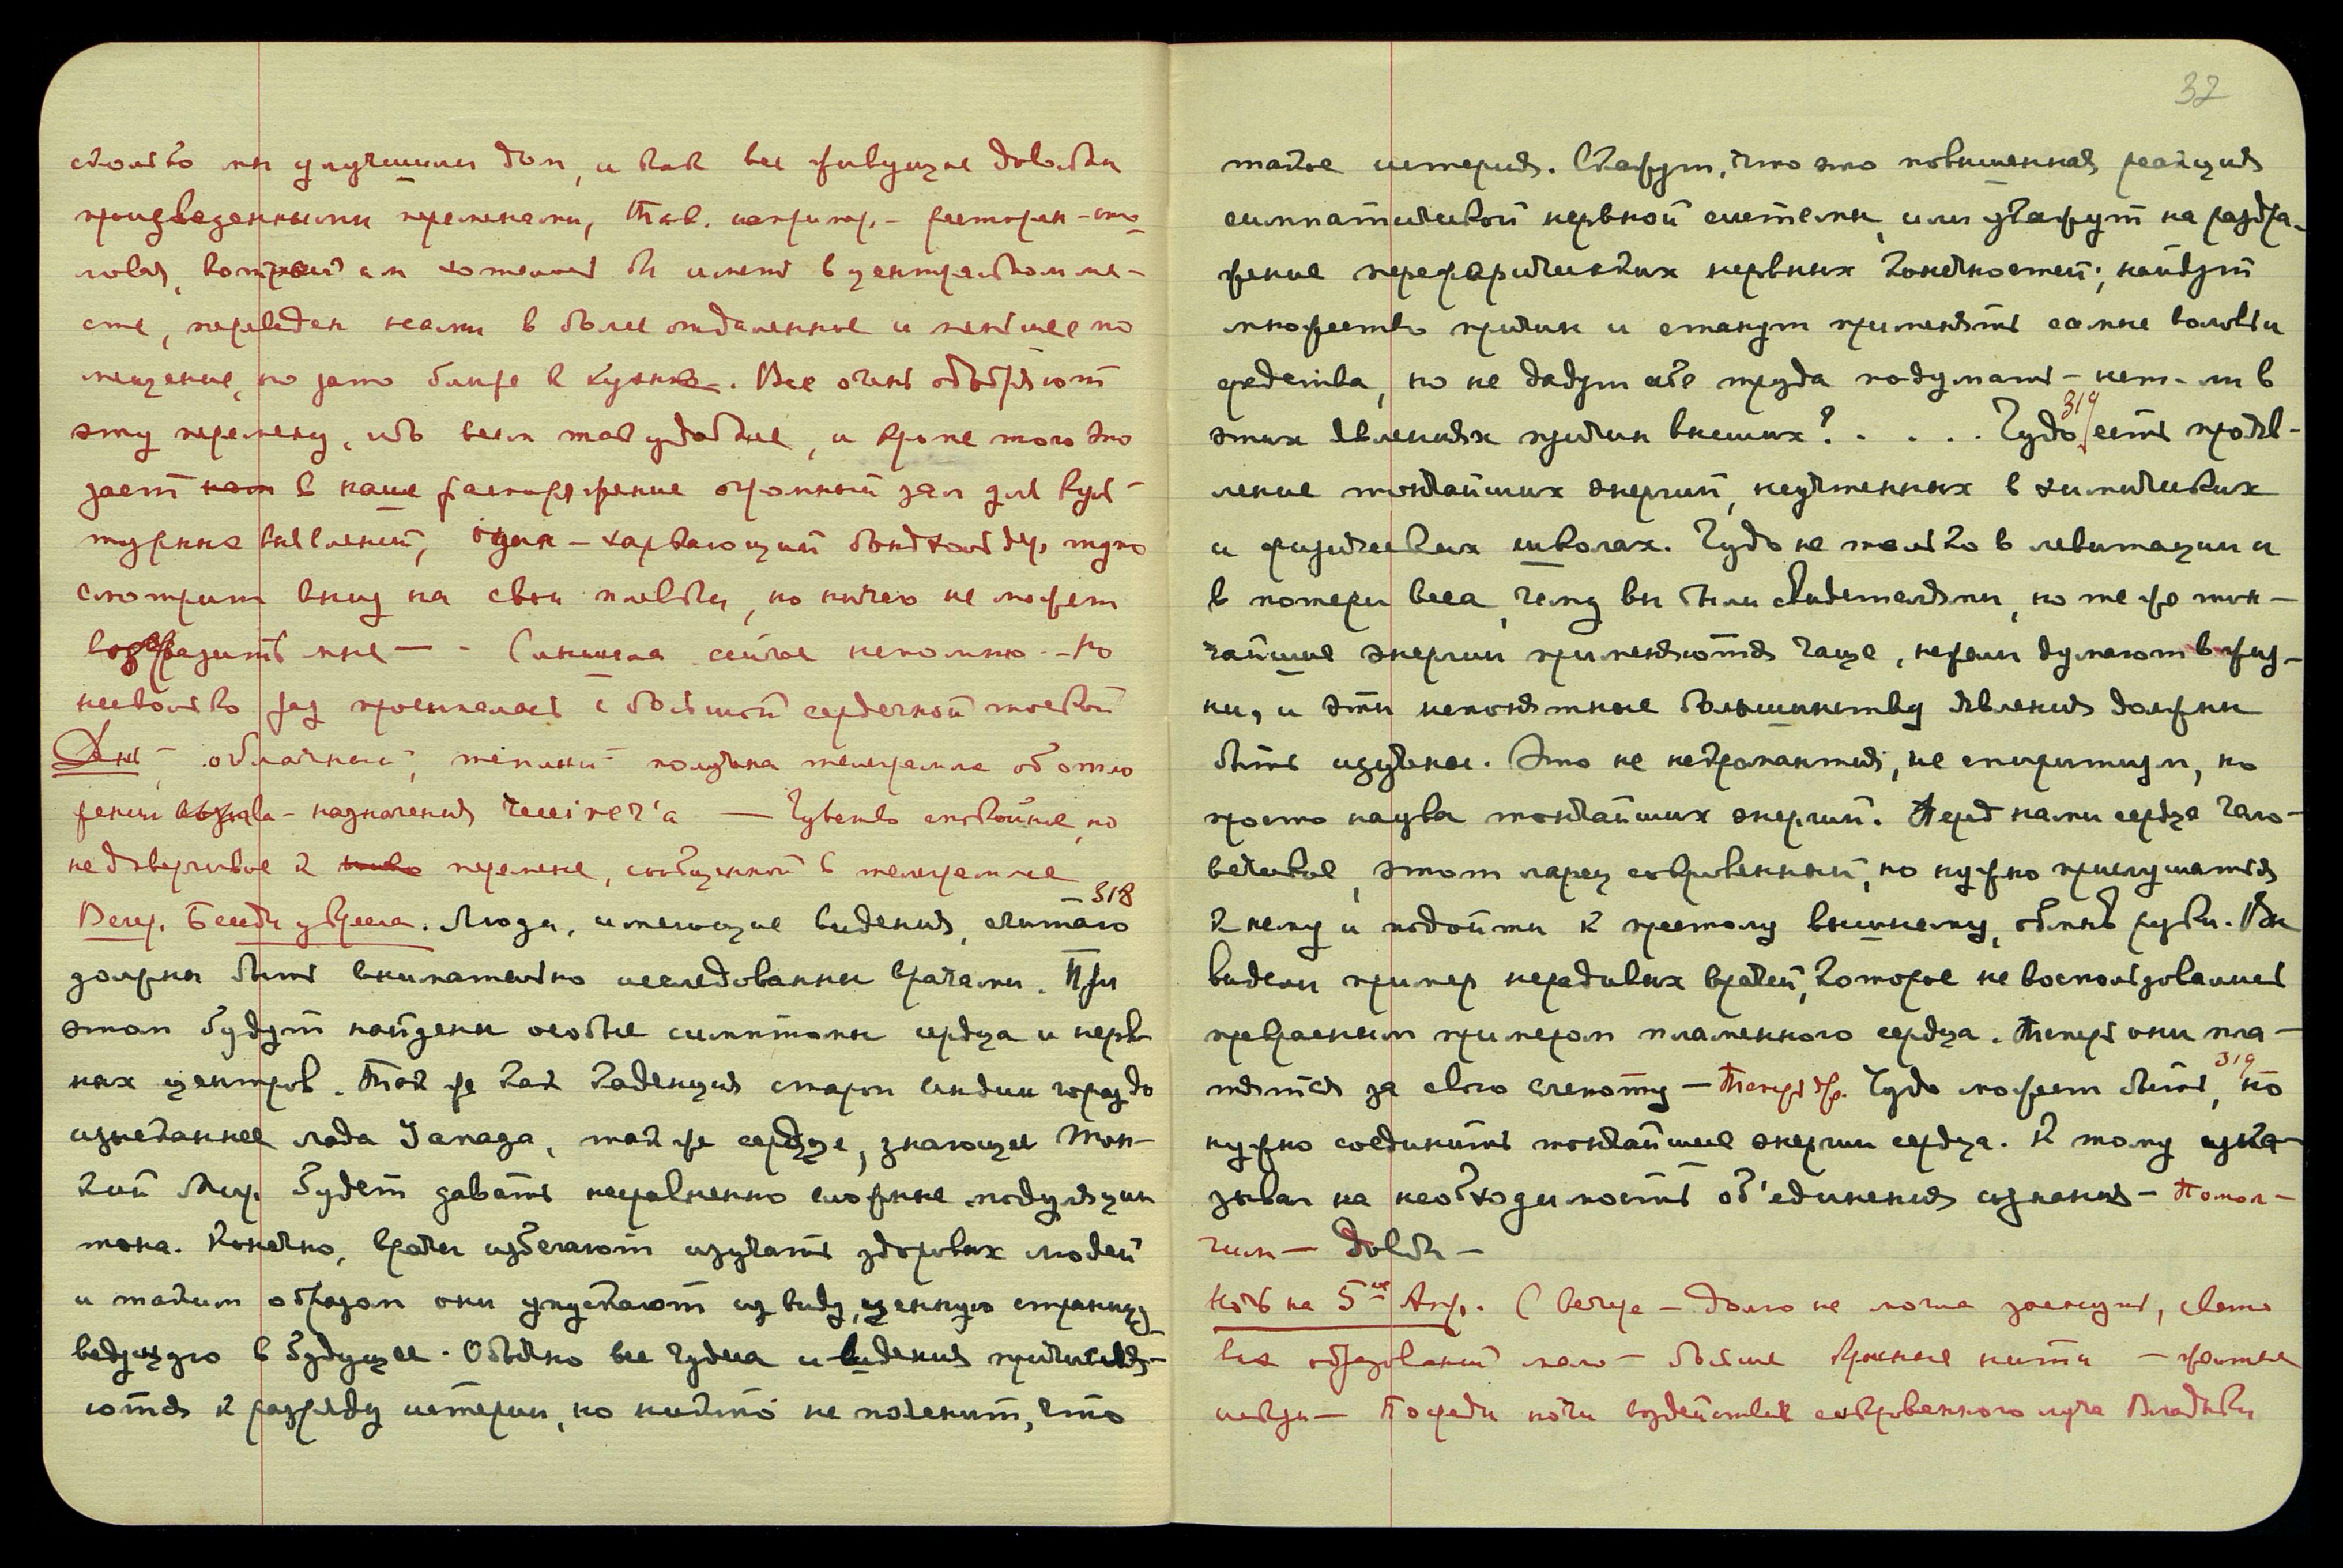 сколько мы улучшили дом, и как все живущие довольны
произведенными переменами, так. например. – ресторан-сто
ловая, который ам хотелось бы иметь в центральном ме-
сте, переведен нами в более отдаленное и меньшее по
мещение, но зато ближе к кухне. Все очень одобряют
эту перемену, ибо всем так удобнее, и кроме того это
дает нам в наше распоряжение огромный зал для куль-
турных явлений, один – харкающий бондхольдер, тупо
смотрит вниз на свои плевки, но ничего не может
возразить мне — - Слышала сейчас не помню - - Но
несколько раз просыпалась с большой сердечной тоской
День, облачный, теплый получена телеграмма об отло
жении – назначения receiver'а — Чувство спокойное, но
недоверчивое к перемене, сообщенной в телеграмме
318
Вечер. Беседа у Кресла. Люди, имеющие видения, считаю
должны быть внимательно исследованны врачами. При
этом будут найдены особые симптомы сердца и нерв
ных центров. Так же как каденция старой Индии гораздо
изысканнее лада Запада, так же сердце, знающее Тон-
кий Мир, будет давать несравненно сложные модуляции
тона. Конечно, врачи избегают изучать здоровых людей
и таким образом они упускают из виду, ценную страницу
ведущую в будущее. Обычно все чудеса и видения причисля-
ются к разряду истерии, но никто не пояснит, что
32
такое истерия. Скажут, что это повышенная реакция
симпатической нервной системы, или укажут на раздра-
жение переферических нервных конечностей; найдут
множество причин и станут применять самые коровьи
средства, но не дадут себе труда подумать – нет-ли в
этих явлениях причин высших? . . . . Чудо есть прояв-
319
ление тончайших энергий, неучтенных в химических
и физических школах. Чудо не только в левитации и
в потери веса, чему вы были свидетелями, но те же тон-
чайшие энергии применяются чаще, нежели думают в жиз-
ни, и эти непонятные большинству явления должны
быть изучены. Это не некромантия, не спиритизм, но
просто наука тончайших энергий. Перед нами сердце чело-
веческое, этот ларец сокровенный, но нужно прислушаться
к нему и подойти к престолу высшему, омыв руки. Вы
видели пример нерадивых врачей, которые не воспользовались
прекрасным примером пламенного сердца. Теперь они пла-
тятся за свою слепоту – Теперь др. Чудо может быть, но
319
нужно соединить тончайшие энергии сердца. К тому ука-
зывал на необходимость об'единения сознания – Помол-
чим – Довольно –
Ночь на 5ое Апр. С вечера – долго не могла заснуть, свето
вых образований мало – больше красные нити – желтые
искры – Посреди ночи воздействие сокровенного луча Владыки